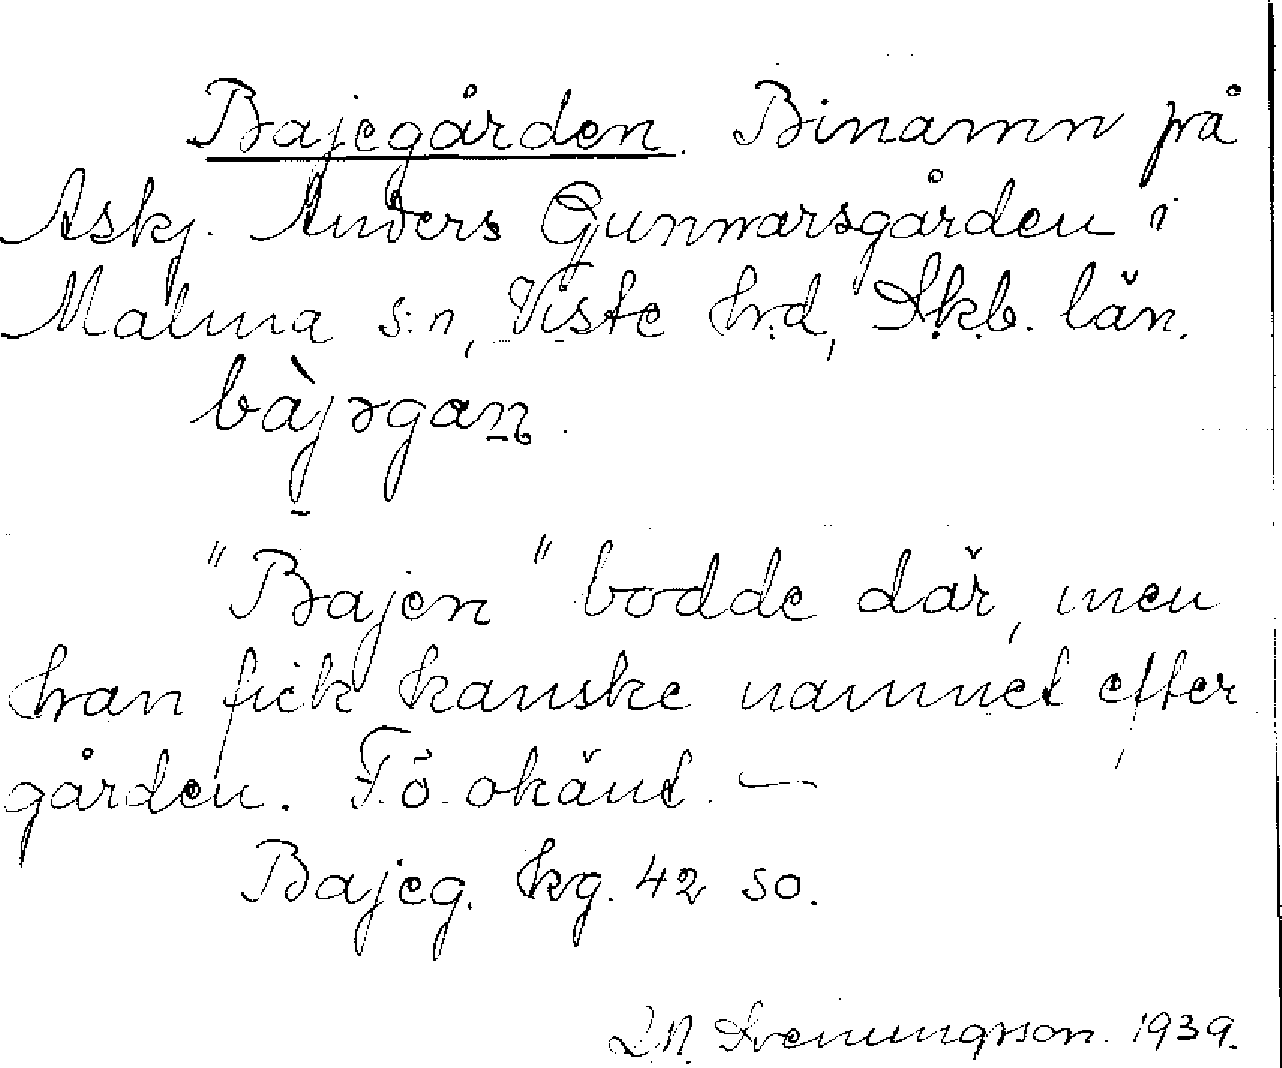 Bajegården. Binamn på
Askj. Anders Gunnarsgården i
Malma s:n, Viste hrd, Skb. län.
bàjəgaṉ.
"Bajen" bodde där, men
han fick kanske namnet efter
gården. F.ö. okänt. —
Bajeg. hg. 42 so.
1939.